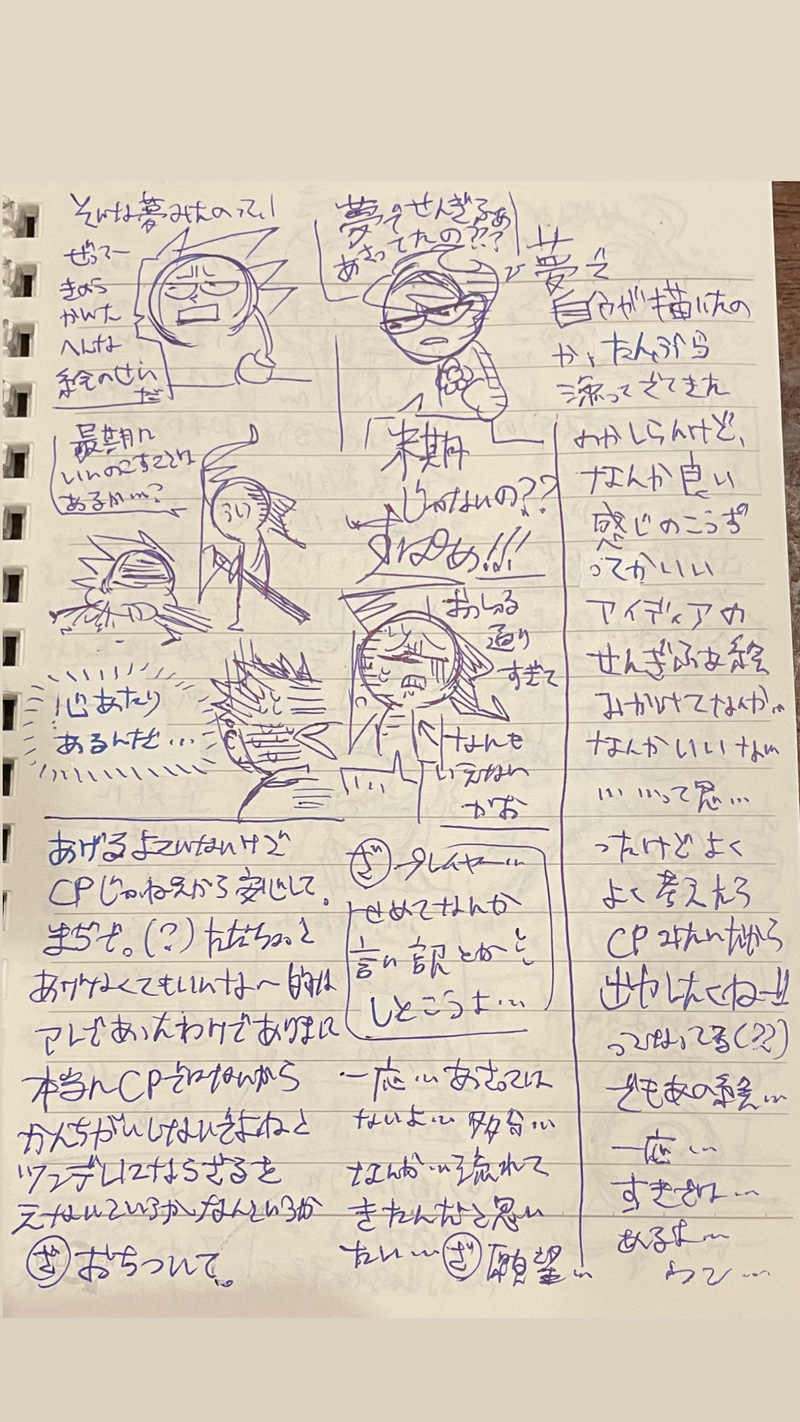 そんな夢みたのって、
ぜってー
きのう
かいた
へんな
絵のせい
だ
夢でせんぎふぁ
あさってたの??
最期に
いいのこすことは
あるか…?
うい
末期
じゃないの??
すけべめ!!!
おっしゃる
通り
すぎて
なんも
いえない
かお
心あたり
あるんだ…
あげるよていないけど
CPじゃねえから安心して。
まぢで。(?)ただちょっと
あげなくてもいいかな〜的な
アレであったわけでありまして
本当にCPではないから
かんちがいしないでよねと
ツンデレにならざるを
えないというかなんというか
ざ おちついて。
ざ プレイヤー…
せめてなんか
言い訳とか…
しとこうよ…
一応…あさっては
ないよ…多分…
なんか…流れて
きたんだと思い
たい…ざ 願望…
夢で
自分が描いたの
か、たんぶら
漁ってでてきた
のかしらんけど、
なんか良い
感じのこうず
ってかいい
アイディアの
せんぎふぁ絵
みかけてなんか…
なんかいいなぁ
……って思…
ったけどよく
よく考えたら
CPみたいだから
出したくねー!!
ってなってる(??)
でもあの絵…
一応…
すきでは…
あるよ…
うん…